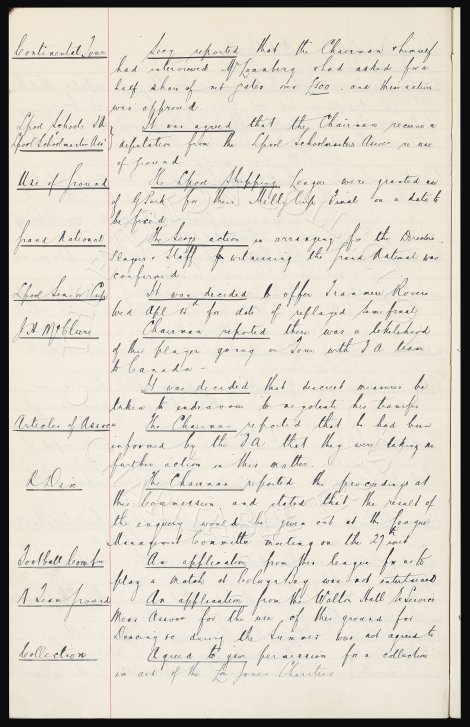 Continental Tour Secy reported that the Chairman & himself
had interviewed Mr Lonnberg & had asked for a
half share of net gates over £400 . and their action
was approved
Lpool Schools F.A It was agreed that the Chairman receive a
Lpool Schoolmasters Assn deputation from the Lpool Schoolmasters Assocn re use
of ground
Use of ground The Lpool Shipping League were granted use
of G Park for their Mill Cup Final on a date to
be fixed
Grand National The Secys action in arranging for the Directors
Players & Staff witnessing the Grand National was
confirmed.
Lpool Senior Cup It was decided to offer Tranmere Rovers
Wed Apl 15th for date of replayed semifinal
J. H McClure Chairman reported there was a likelihood
of this player going on Tour with F A team
to Canada -
It was decided that discreet measures be
taken to endeavour to negotiate his transfer
Articles of Assocn The Chairman reported that he had been
informed by the F A that they were taking no
further action in this matter.
R. Dix The Chairman reported the proceedings at
this Commission and stated that the result of
the enquiry would be given out at the League
Management Committee meeting on the 27th inst
Football Combn An application from this league for us to
play a match at Colwyn Bay was not entertained
A Team ground An application from the Walton Hall Ex Service
Mens Assocn for the use of this ground for
Dancing &c during the Summer was not agreed to.
Collection Agreed to give permission for a collection
in aid of the Ld Jones Charities